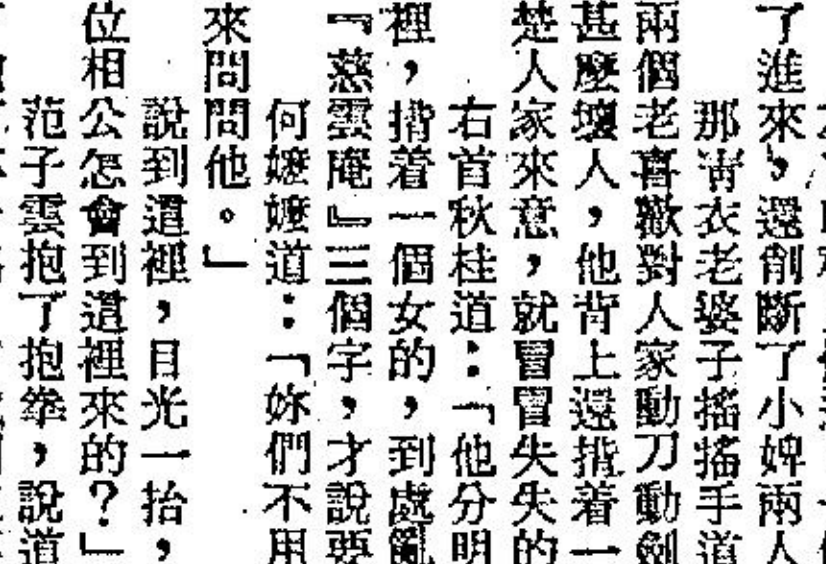 了進來,還削斷了小婢兩人
那靑衣老婆子搖搖手道
兩個老喜歡對人家動刀動劍
甚麼壞人,他背上還揹着一
楚人家來意,就冒冒失失的
右首秋桂道:「他分明
裡,揹着一個女的,到處亂
『慈雲庵』三個字,才說要
何嬤嬤道:「妳們不用
來問問他。」
說到這裡,目光一抬,
位相公怎會到這裡來的?」
范子雲抱了抱拳,說道